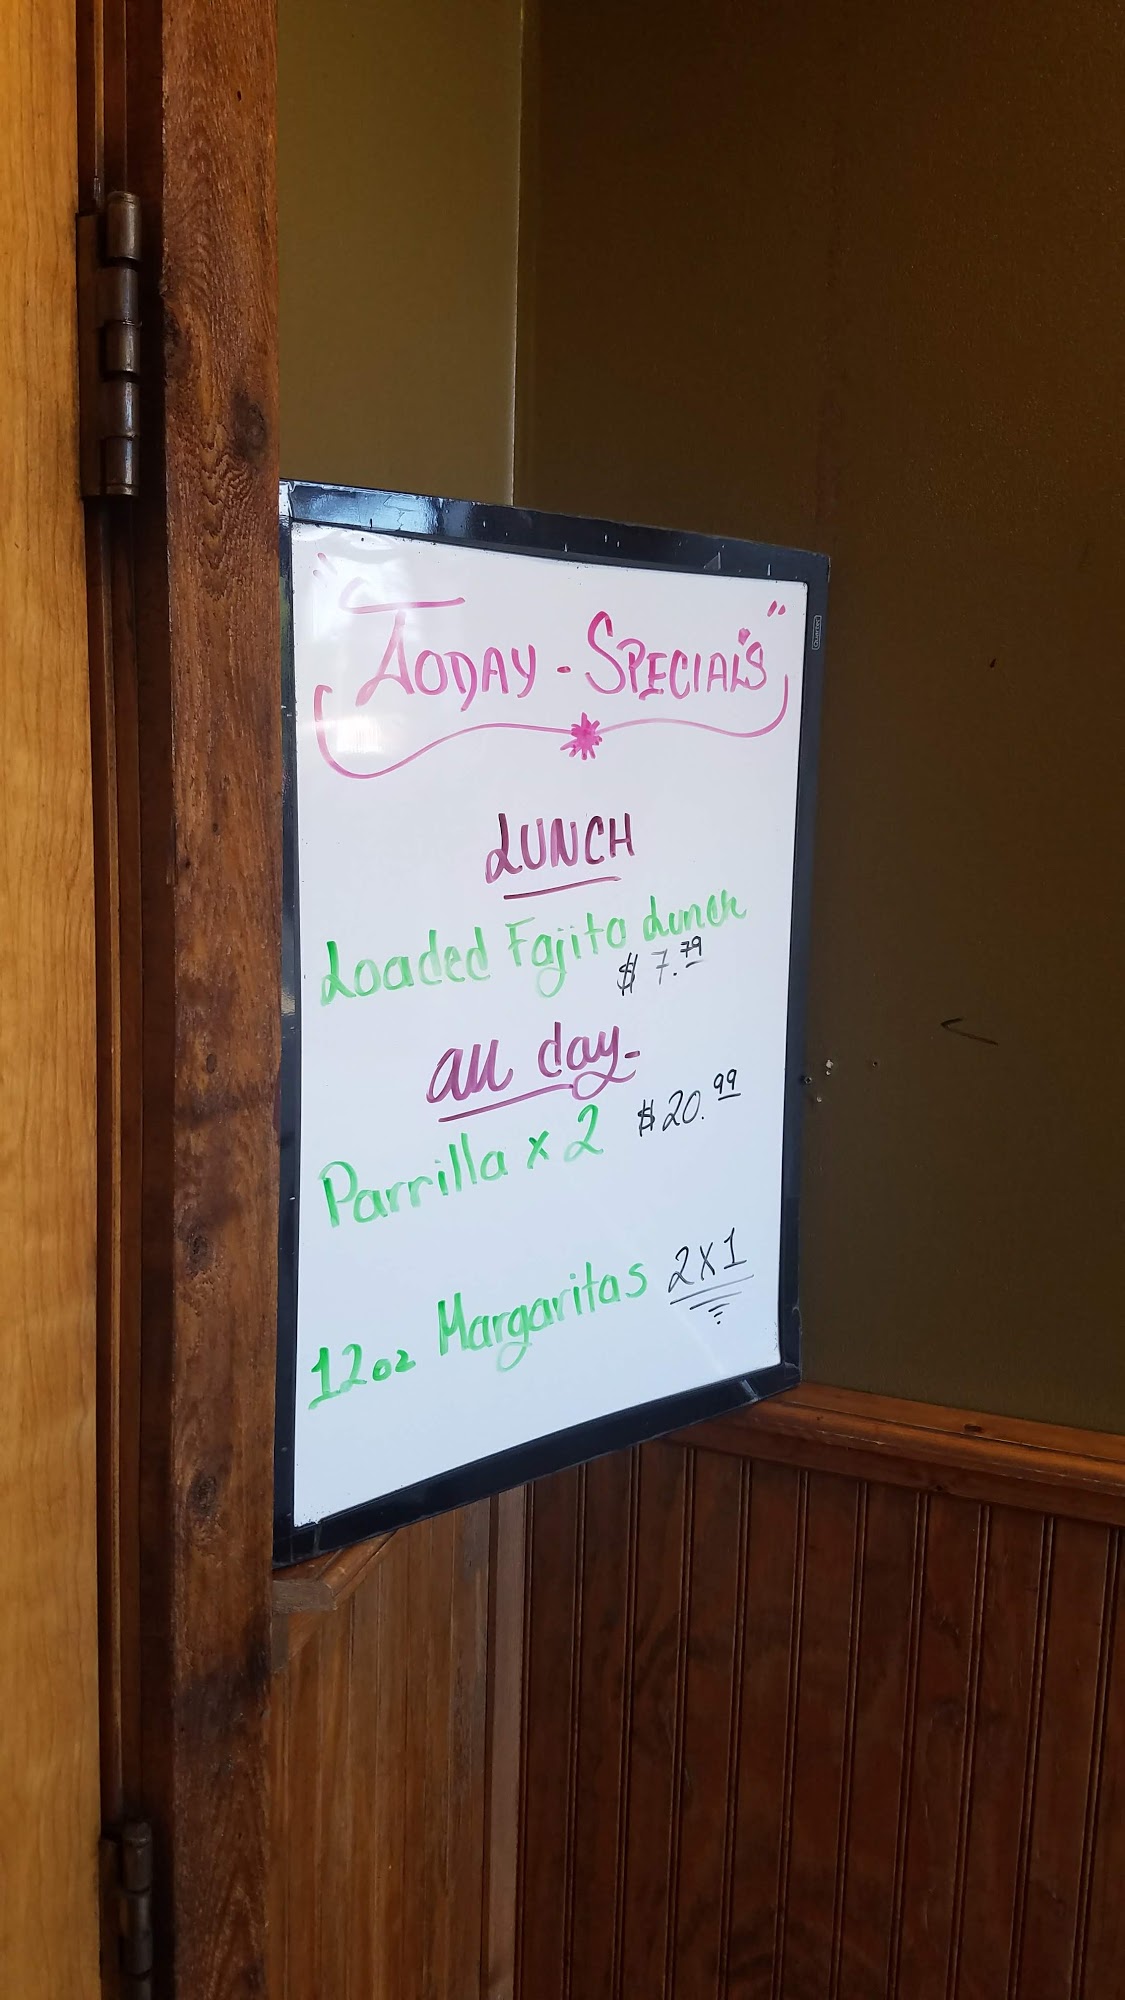 "Today - Special's"
LUNCH
Loaded Fajita Lunch
$ 7.79
all day-
Parrilla x 2 $20.99
12oz Margaritas 2x1
Quartet